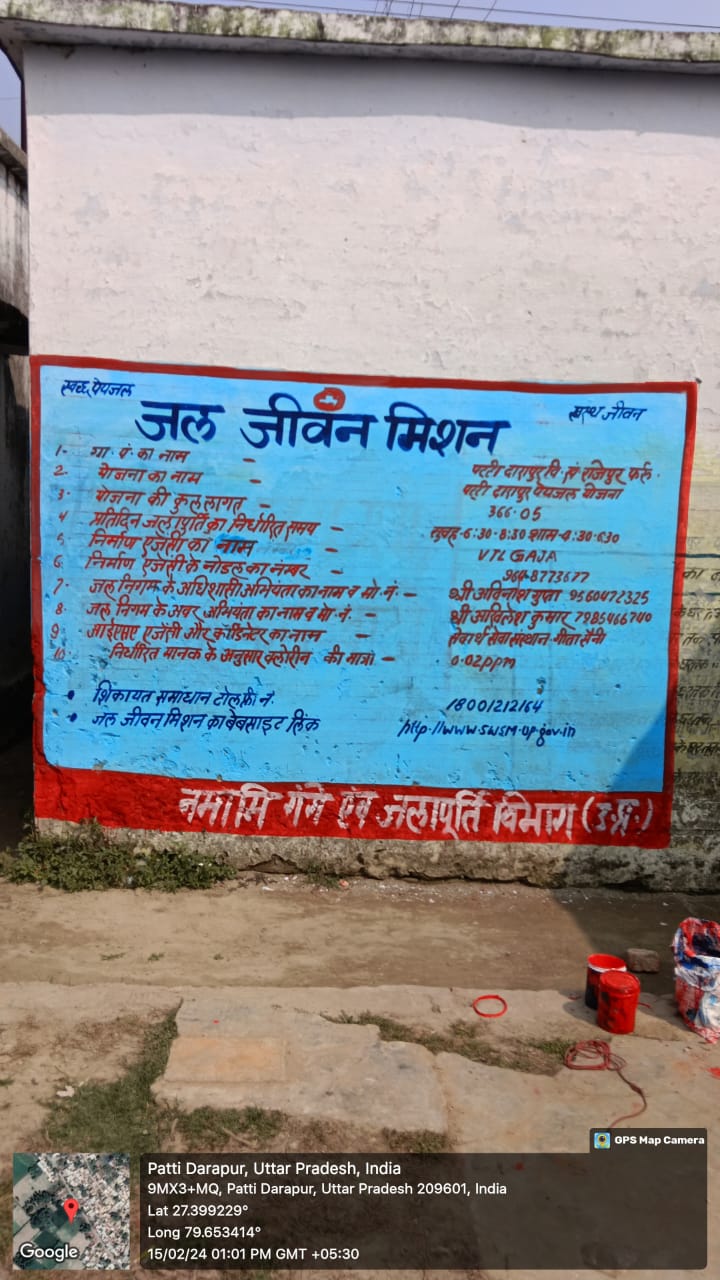 स्वच्छ पेयजल
स्वस्थ जीवन
जल जीवन मिशन
1- ग्रा. पं. का नाम - पट्टी दारापुर वि. सं राजेपुर फर्रु.
2. योजना का नाम - पट्टी दारापुर पेयजल योजना
3. योजना की कुल लागत - 366.05
4 प्रतिदिन जल पूर्ति का निर्धारित समय - सुबह-6:30-8:30 शाम-4:30-6:30
5. निर्माण एजेंसी का नाम - VTL GAJA
6. निर्माण एजेंसी के नोडल का नंम्बर -
7. जल निगम के अधिशासी अभियंता का नाम व मो. नं. - श्री अविनाश गुप्ता 9560472325
8. जल निगम के अवर अभियंता का नाम व मो. नं. - श्री अखिलेश कुमार 7985466740
9 आईएसए एजेंसी और कोर्डिनेटर का नाम - सेवार्थ सेवा संस्थान-गीता सैनी
10. निर्धारित मानक के अनुसार क्लोरीन की मात्रा - 0.02ppm
• शिकायत समाधान टोल फ्री नं. 18001212164
• जल जीवन मिशन का बेबसाइट लिंक http://www.swsm-up.gov.in
नमामि गंगे एवं जलापूर्ति विभाग (उ.प्र.)
GPS Map Camera
Patti Darapur, Uttar Pradesh, India
9MX3+MQ, Patti Darapur, Uttar Pradesh 209601, India
Lat 27.399229°
Long 79.653414°
15/02/24 01:01 PM GMT +05:30
Google